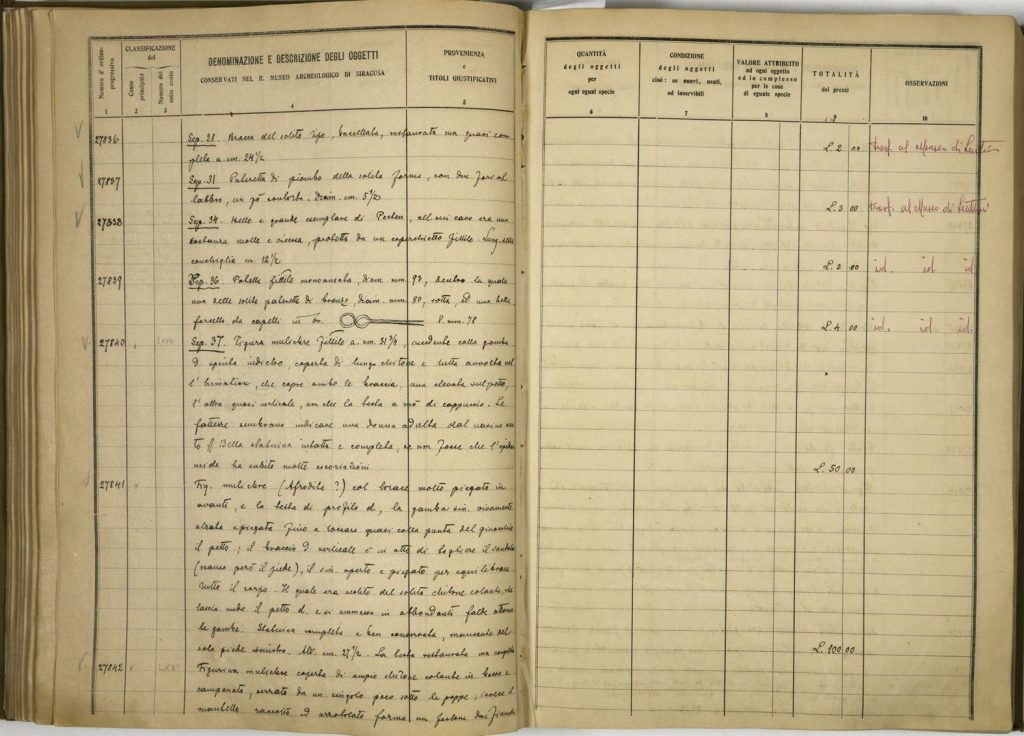 Numero d'ordine progressivo
CLASSIFICAZIONE
del
Conto principale
Numero del sotto conto
DENOMINAZIONE E DESCRIZIONE DEGLI OGGETTI
CONSERVATI NEL R. MUSEO ARCHEOLOGICO DI SIRACUSA
PROVENIENZA
e
TITOLI GIUSTIFICATIVI
1 2 3 4 5
27836 Sep. 28. Brocca del solito tipo, baccellata, restaurata ma quasi com
pleta a. cm. 24 1/2
27837 Sep. 31 Pateretta di piombo della solita forma, con due fori al
labbro, un pò contorta. Diam. cm. 5 1/2
27838 Sep. 34. Bello e grande esemplare di Pecten, nel cui cavo era una
sostanza molle e viscosa, protetta da un coperchietto fittile. Lung. della
conchiglia cm. 12 1/2
27839 Sep. 36. Patella fittile monoansata, diam. mm. 93, dentro la quale
una delle solite paterette di bronzo, diam. mm. 80, rotta, ed una bella
forcella da capelli in br. l. mm. 78
27840 LXVII Sep. 37. Figura muliebre fittile a. cm. 31 3/4, incedente colla gamba
d. spinta indietro, coperta di lungo chitone e tutta avvolta nel
l'himation, che copre ambo le braccia, una elevata sul petto,
l'altra quasi verticale, non che la testa a mò di cappuccio. Le
fattezze sembrano indicare una donna adulta dal nasino
Bella statuina intatta e completa, se non fosse che l'epider
mide ha subito molte escoriazioni
27841 Fig. muliebre (Afrodite ?) col torace molto piegato in
avanti, e la testa di profilo d., la gamba sin. vivamente
alzata e piegata fino a toccare quasi colla punta del ginocchio
il petto; il braccio d. verticale è in atto di togliere il sandalo
(manca però il piede), il sin. aperto e piegato per equilibrare
tutto il corpo. Il quale era vestito del solito chitone colante, che
lascia nudo il petto d. e si ammassa in abbondanti falde attorno
le gambe. Statuina completa e ben conservata, mancante del
solo piede sinistro. Alt. cm. 27 1/2. La testa restaurata ma completa
27842 LXVII Figurina muliebre coperta di ampio chitone colante in basso e
campanato, serrato da un cingolo poco sotto le poppe; invece il
mantello raccolto ed arrotolato forma un festone dai fianchi
QUANTITÀ
degli oggetti
per
ogni eguni specie
CONDIZIONE
degli oggetti
cioè: se nuovi, usati,
od inservibili
VALORE ATTRIBUITO
ad ogni oggetto
ed in complesso
per le cose
di eguale specie
TOTALITÀ
dei prezzi
OSSERVAZIONI
6 7 8 9 10
L. 2 00 trasf. al Museo di Lentini
L. 3 00 trasf. al Museo di Lentini
L. 3 00 id. id. id
L. 4 00 id. id. id.
L. 50 00
L. 100 00